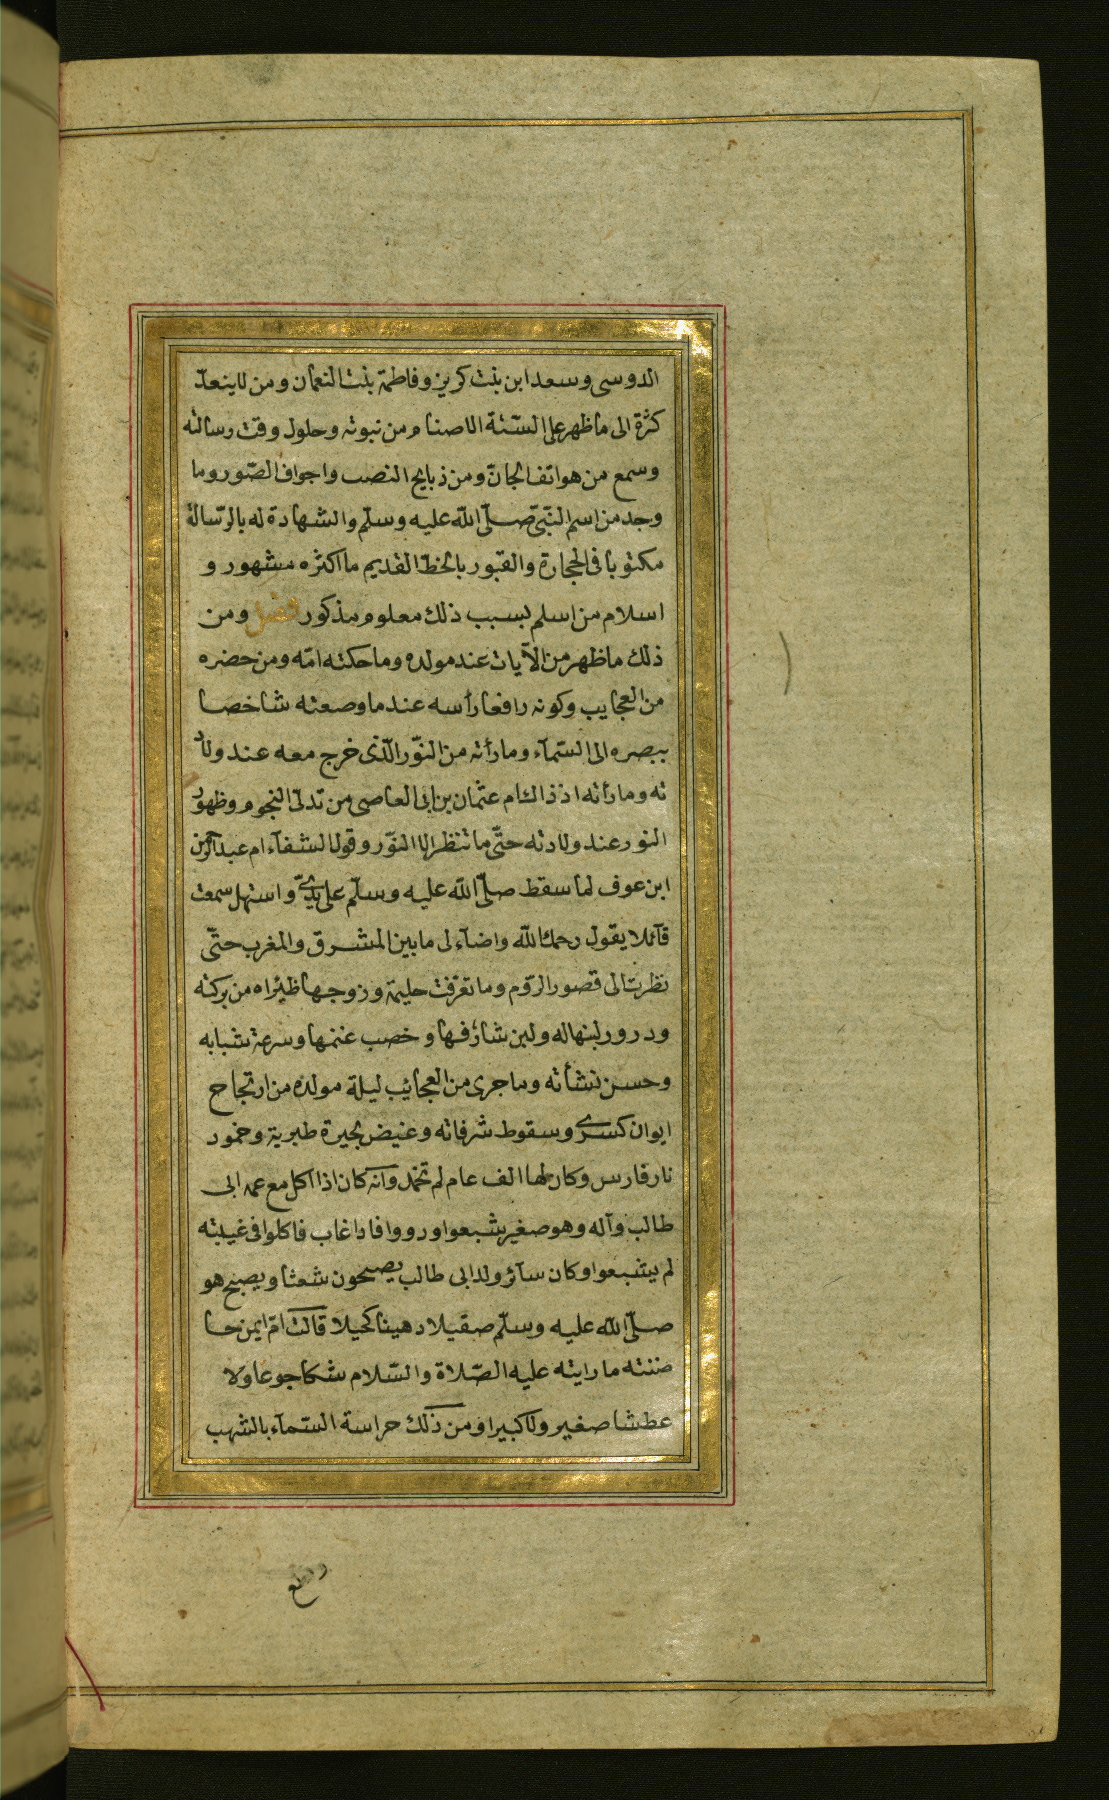 الدوسى وسعد ابن بنت كريز وفاطمة بنت النعمان ومن لاينعدّ
كثرة الى ماظهر على السنة الاصنام من نبوته وحلول وقت رسالته
وسمع من هواتف الجانّ ومن ذبايح النصب واجواف الصّور وما
وجد من اسم النّبىّ صلّى اللّه عليه وسلّم والشهادة له بالرّسالة
مكتوبا فى الحجارة والقبور بالخطّ القديم ما اكثره مشهور و
اسلام من اسلم بسبب ذلك معلوم مذكور فصل ومن
ذلك ماظهر من الآيات عند مولده وماحكته امّه ومن حضره
من العجايب وكونه رافعا رأسه عند ماوضعته شاخصا
ببصره الى السّمآء ومارأته من النّور الّذى خرج معه عند ولاد
ته ومارأته اذ ذاك ام عثمان بن ابى العاصى من تدلّى النجوم وظهور
النور عند ولادته حتّى ماتنظر الا النّور وقول الشفآء ام عبد الرحمن
ابن عوف لما سقط صلّى اللّه عليه وسلّم على يدىّ واستهل سمعت
قآئلا يقول رحمك اللّه واضآء لى مابين المشرق والمغرب حتّى
نظرت الى قصور الرّوم وماتعرّفت حليمة وزوجها ظئراه من بركته
ودرور لبنها له ولبن شارفها وخصب غنمها وسرعة شبابه
وحسن نشأته وماجرى من العجائب ليلة مولده من ارتجاج
ايوان كسرى وسقوط شرفاته وغيض بحيرة طبرية وخمود
نار فارس وكان لها الف عام لم تخمد وانه كان اذا اكل مع عمه ابى
طالب وآله وهو صغير شبعوا ورووا فاذا غاب فاكلوا فى غيبته
لم يشبعوا وكان سآئر ولد ابى طالب يصبحون شعثا ويصبح هو
صلّى اللّه عليه وسلّم صقيلا دهينا كحيلا قالت امّ ايمن حا
ضنته مارايته عليه الصّلاة والسّلام شكا جوعا ولا
عطشا صغير ولا كبيرا ومن ذلك حراسة السّمآء بالشهب
وقطع